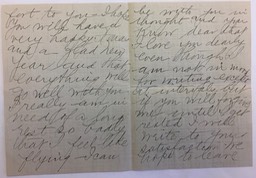 fort to you. I hope
you will have a
very happy I dear
and a glad New
Year and that
everything will
go well with you
I really am in
need of a long
rest so badly
that I feel like
flying I can
be with you in
thought and you
know dear that
I love you dearly
even though I
am not in
for writing except
at intervals but
if you will
me until I get
rested I will
write to you
satisfactor we
hope to leave